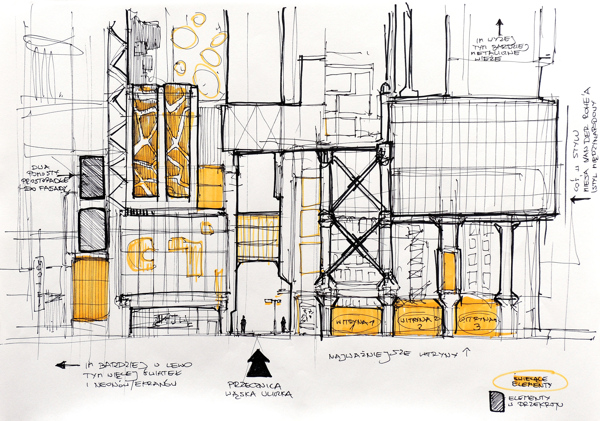 IM WYŻEJ
TYM BARDZIEJ
METALICZNE
WIEŻE
DWA
POMOSTY
PROSTOPADŁE
DO FASADY
COŚ W STYLU
MIESA VAN DER ROHE'A
(STYL MIĘDZYNARODOWY
WITRYNA 1
WITRYNA 2
WITRYNA 3
IM BARDZIEJ W LEWO
TYM WIĘCEJ ŚWIATEŁ
I NEONÓW/EKRANÓW
PRZECZNICA
WĄSKA ULICZKA
NAJWAŻNIEJSZE WITRYNY
ŚWIECĄCE
ELEMENTY
ELEMENTY
W PRZEKROJU